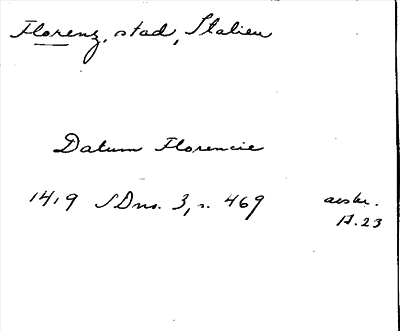 Florenz, stad, Italien
Datum Florencie
1419 SDns. 3, s. 469
avskr.
A. 23